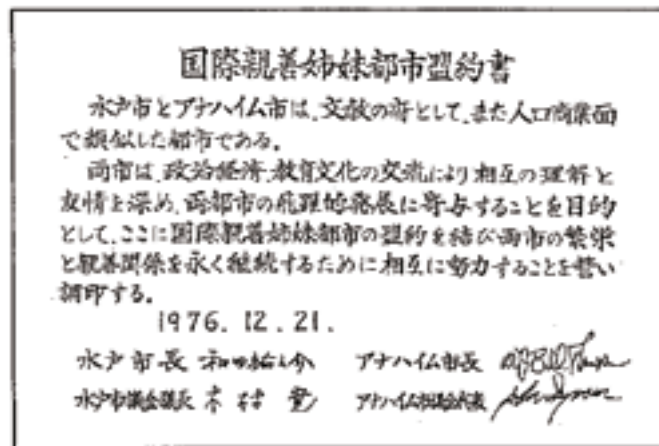 国際親善姉妹都市盟約書
水戸市とアナハイム市は、文教の府として、また人口商業面
で類似した都市である。
両市は、政治経済、教育文化の交流により相互の理解と
友情を深め、両都市の飛躍的発展に寄与することを目的
として、ここに国際親善姉妹都市の盟約を結び両市の繁栄
と親善関係を永く継続するために相互に努力することを誓い
調印する。
1976.12.21.
水戸市長 和田祐之介 アナハイム市長
水戸市議会議長 木村 アナハイム市議会代表